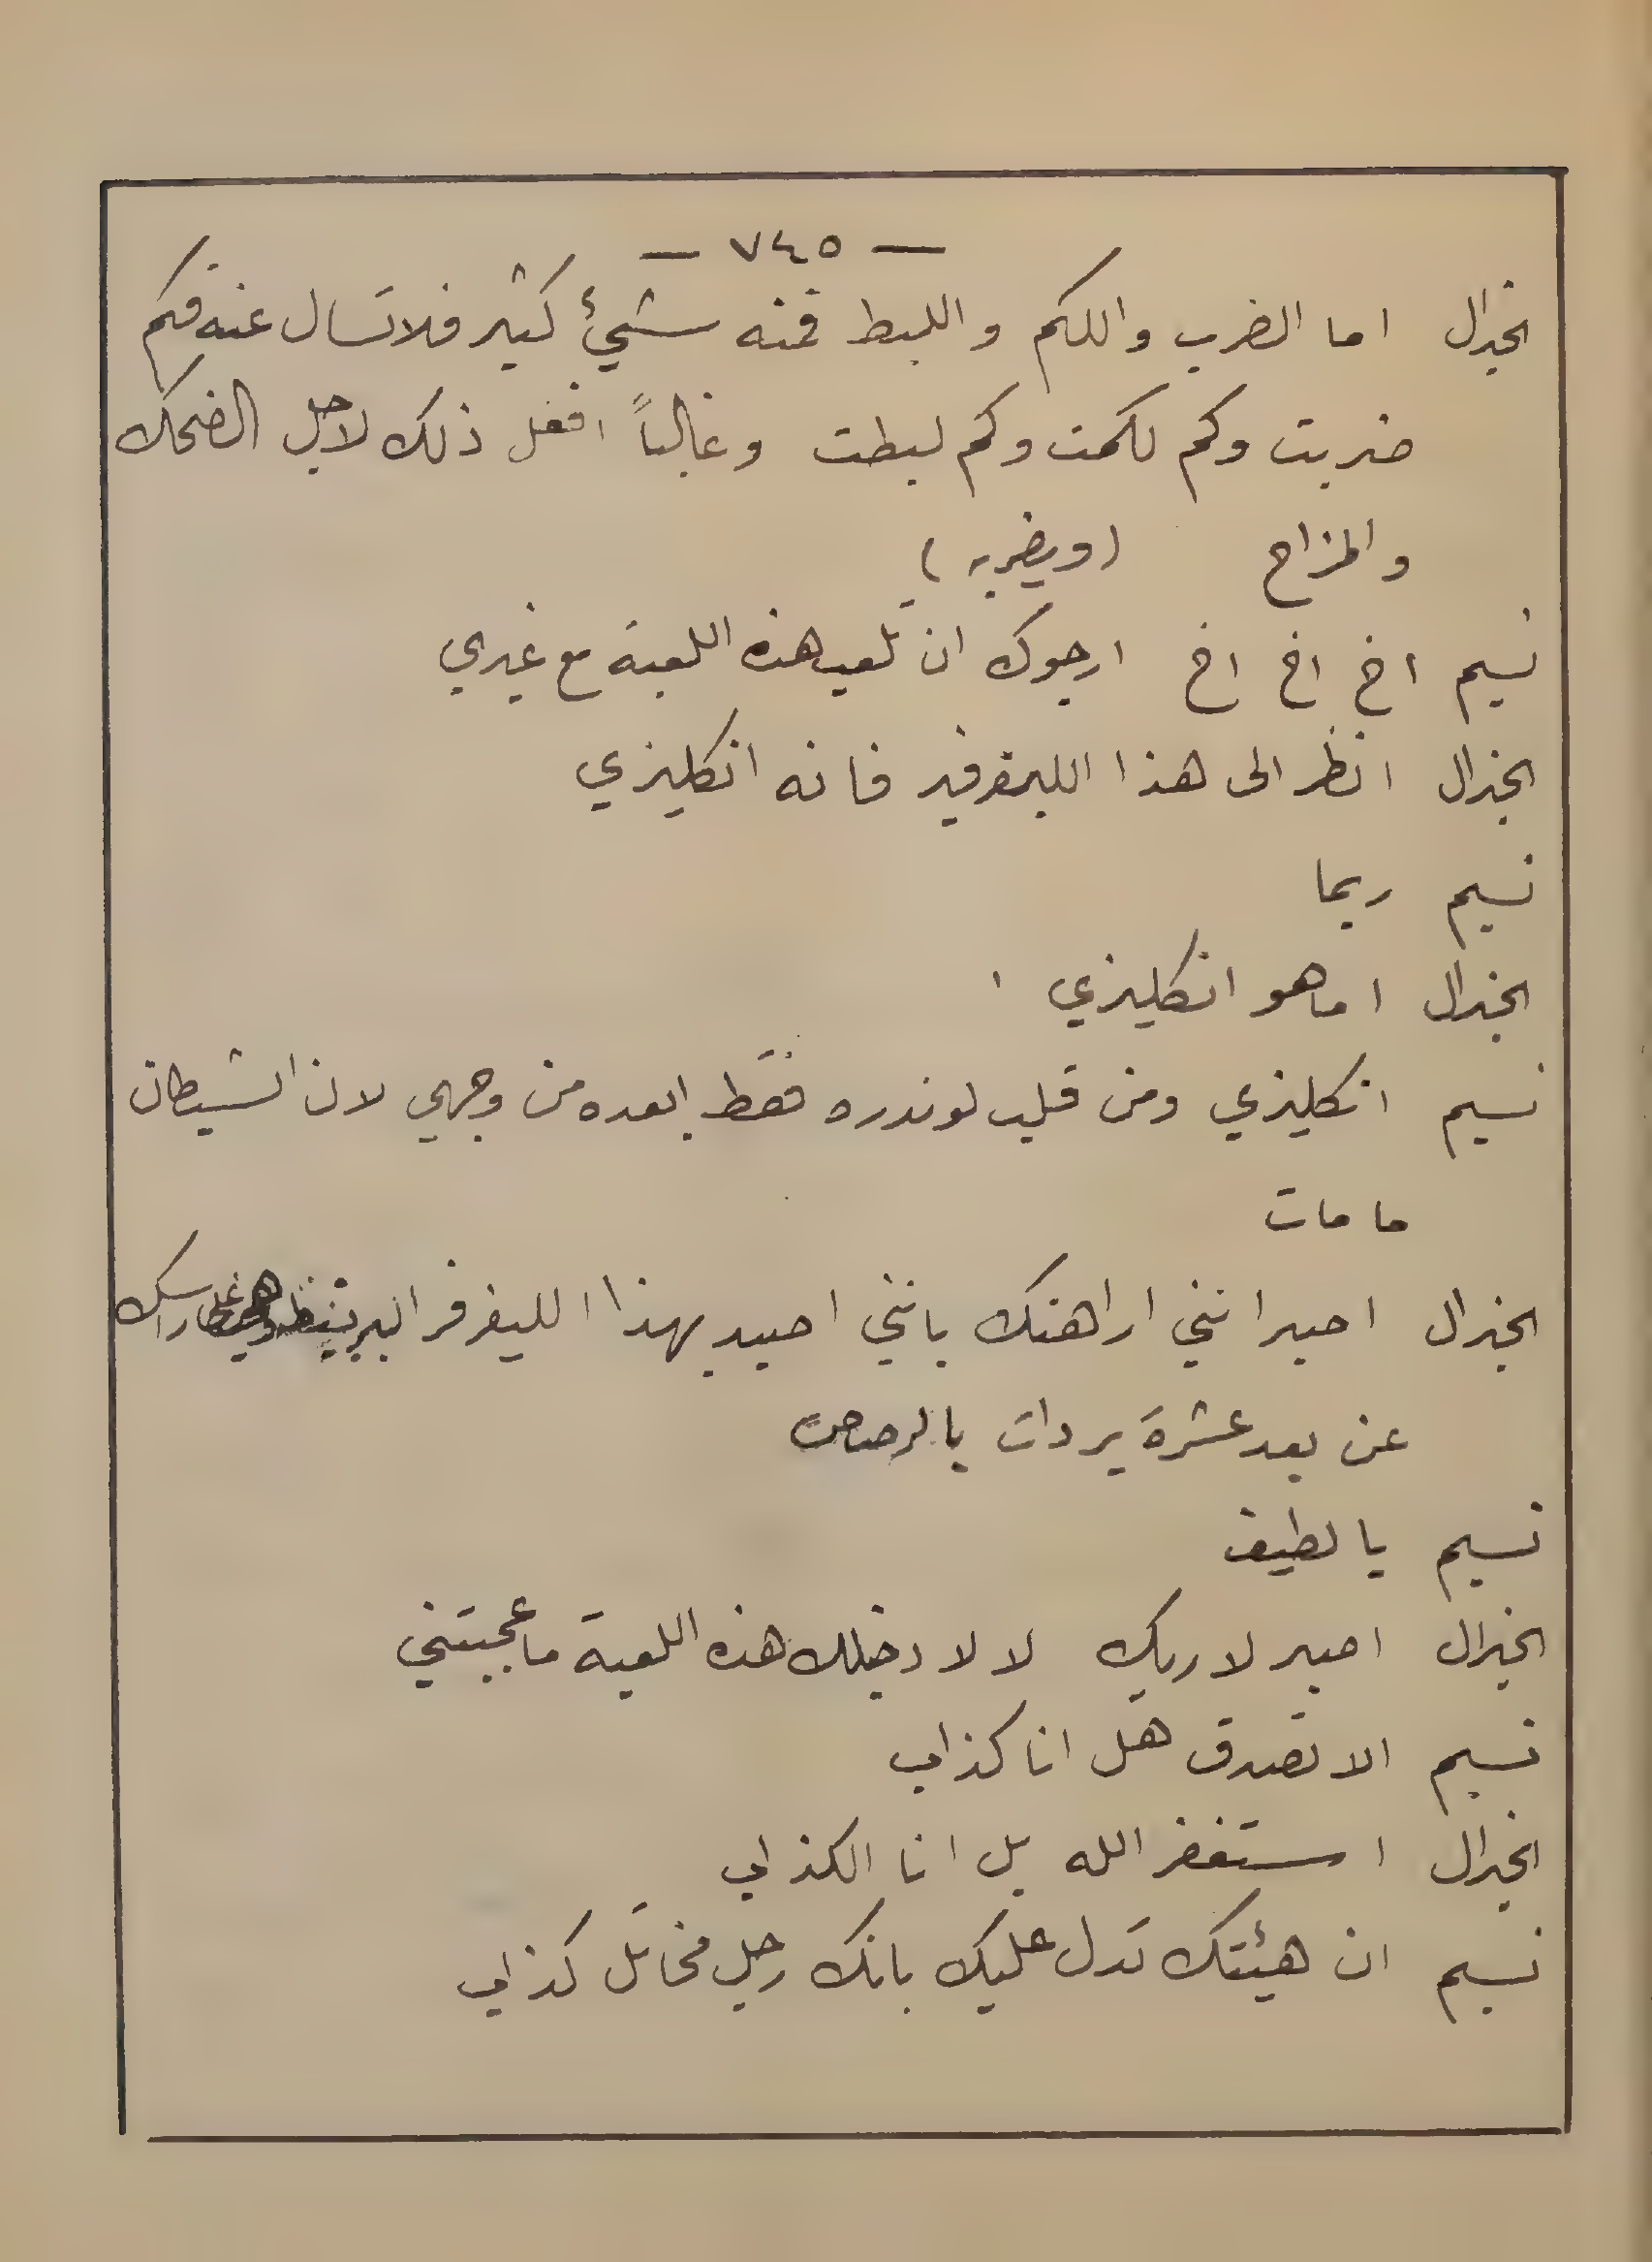 — ٧٤٥ —
الجنرال اما الضرب واللكم واللبط فمنه شيئ كثير فلا تسال عنه فكم
ضربت وكم لكمت وكم لبطت وغالباً افعل ذلك لاجل الضحك
والمزاح (ويضربه)
نسيم اخ اخ اخ ارجوك ان تلعب هذه اللعبة مع غيري
الجنرال انظر الى هذا الليفرفير فانه انكليزي
نسيم ربما
الجنرال اما هو انكليزي
نسيم انكليزي ومن قلب لوندره فقط ابعده من وجهي لان الشيطان
ما مات
الجنرال اصبر انني اراهنك بانني اصيد بهذا الليفرفر على راسك
عن بعد عشرة يردات بالرصاص
نسيم يا لطيف
الجنرال اصبر لاريك لا لا دخيلك هذه اللعبة ما عجبتني
نسيم الا تصدق هل انا كذاب
الجنرال استغفر الله بل انا الكذاب
نسيم ان هيئتك تدل عليك بانك رجل مخاتل كذاب